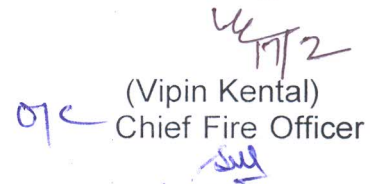 17/2
(Vipin Kental)
O/C Chief Fire Officer